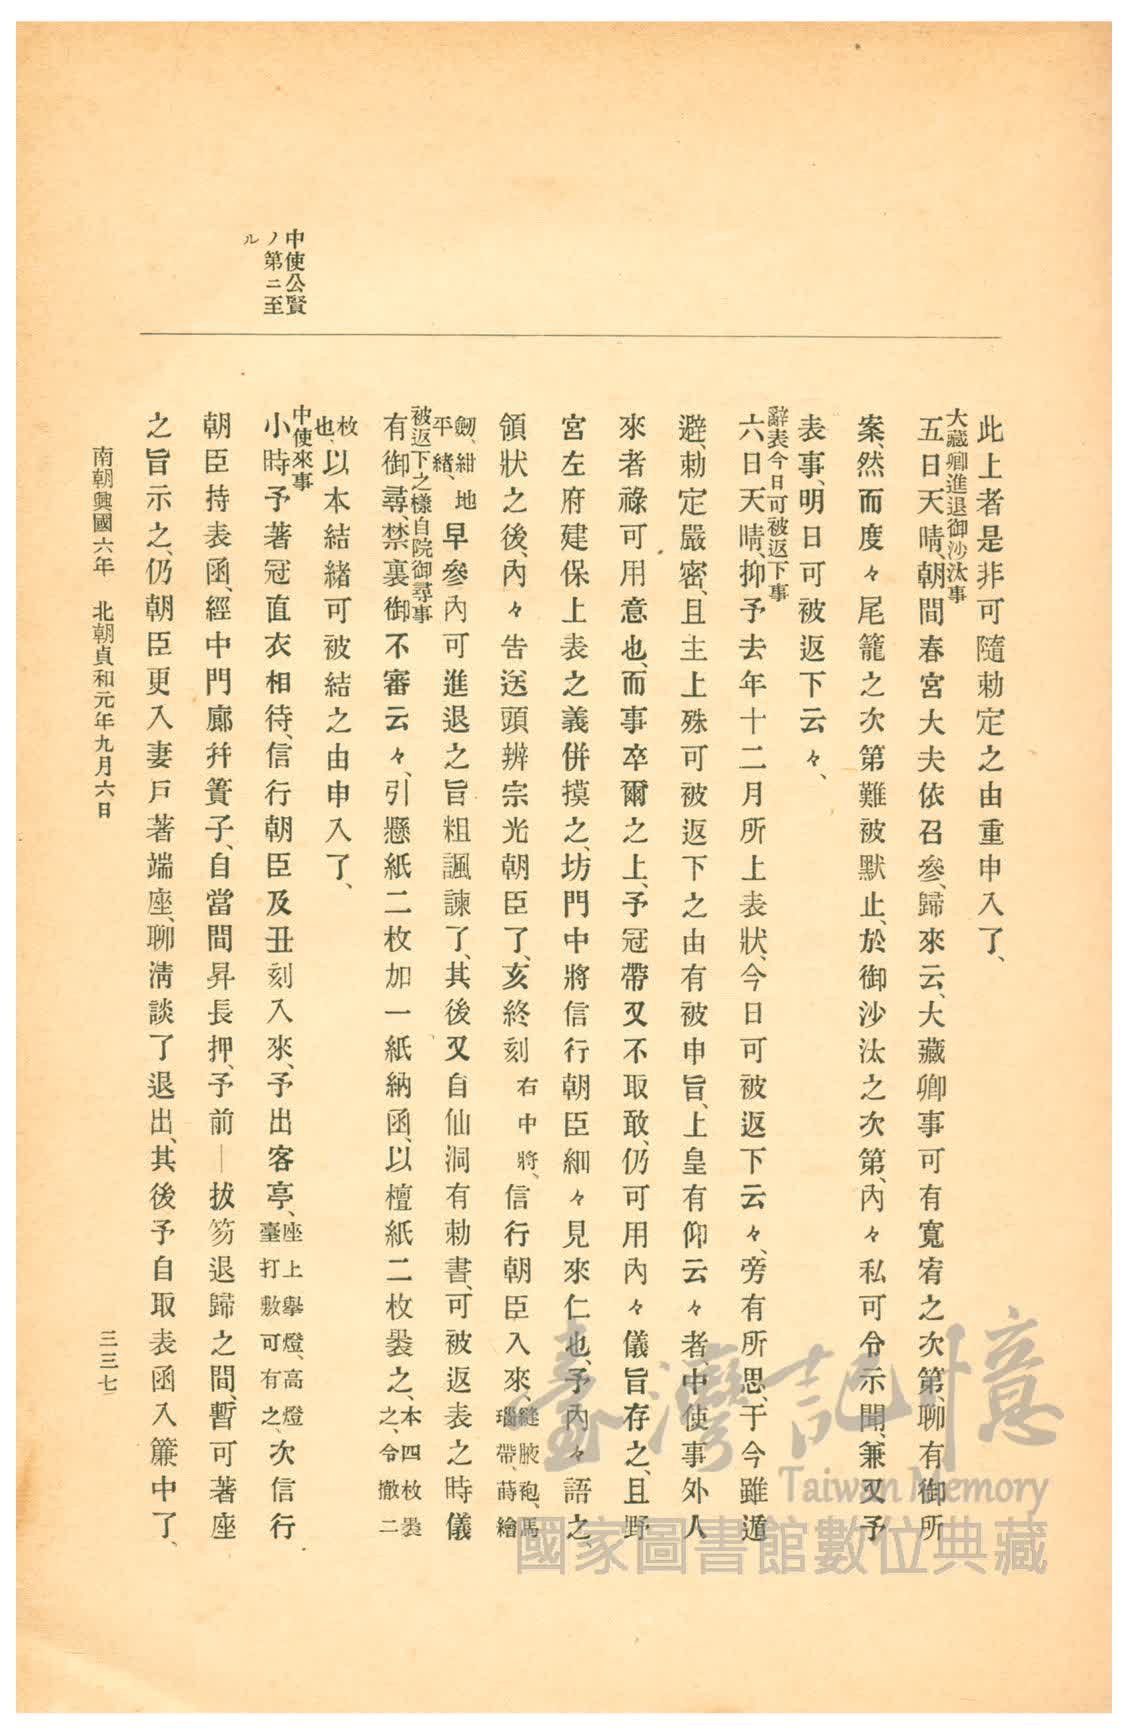 中使公賢
ノ第ニ至
ル
此上者是非可隨勅定之由重申入了、
大藏卿進退御沙汰事
五日天晴、朝間春宮大夫依召參、歸來云、大藏卿事可有寬宥之次第、聊有御所
案、然而度々尾籠之次第難被默止、於御沙汰之次第、內々私可令示聞、兼又予
表事、明日可被返下云々、
辭表今日可被返下事
六日天晴、抑予去年十二月所上表狀、今日可被返下云々、旁有所思、于今雖遁
避、勅定嚴密、且主上殊可被返下之由有被申旨、上皇有仰云々者、中使事外人
來者祿可用意也、而事卒爾之上、予冠帶又不取敢、仍可用內々儀旨存之、且野
宮左府建保上表之義併摸之、坊門中將信行朝臣細々見來仁也、予內々語之、
領狀之後、內々告送頭辨宗光朝臣了、亥終刻右中將、信行朝臣入來、縫腋袍、馬
瑙帶、蒔繪
劔、紺地
平緒、早參內可進退之旨粗諷諫了、其後又自仙洞有勅書、可被返表之時儀
被返下之樣自院御尋事
有御尋、禁裏御不審云々、引懸紙二枚加一紙納函、以檀紙二枚裹之、本四枚裹
之、令撤二
枚
也、以本結緒可被結之由申入了、
中使來事
小時予著冠直衣相待、信行朝臣及丑刻入來、予出客亭、座上擧燈、高燈
臺打敷可有之、次信行
朝臣持表函、經中門廊幷簀子、自當間昇長押、予前—拔笏退歸之間、暫可著座
之旨示之、仍朝臣更入妻戶著端座、聊淸談了退出、其後予自取表函入簾中了、
南朝興國六年　北朝貞和元年九月六日
三三七
臺灣記憶
Taiwan Memory
國家圖書館數位典藏